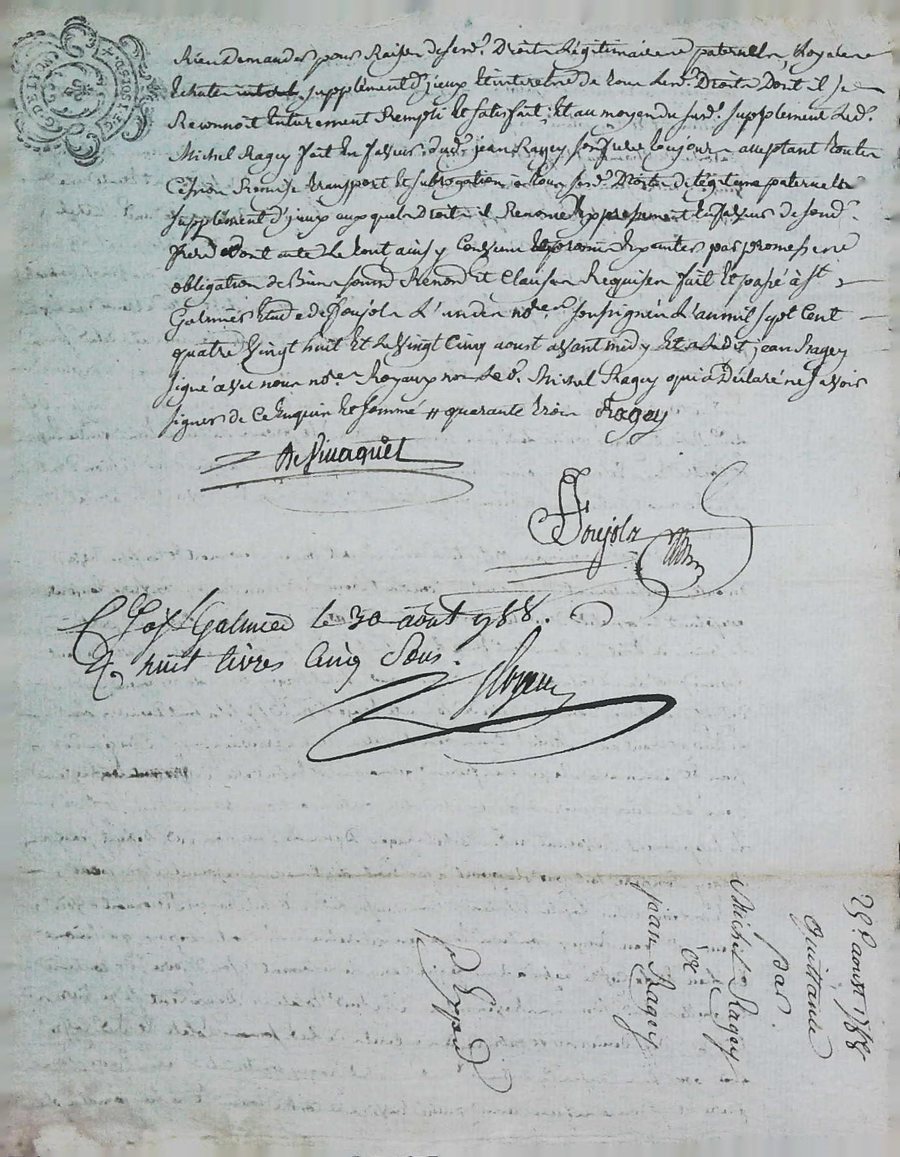 G. DE LYON
Rien demander pour Raison desend.s Droits Légitimaires paternels,
Echute supplement d'jceux Et interets de tous Lesd.s Droits Dont il se
Reconnoit Entierement Rempli Et satisfait, Et au moyen du susd.t supplement led.t
Michel Ragey fait En faveur dud.t jean Ragey son frere toujours acceptant toutte
Cession Remise transport Et subrogation à tous sesd.s Droits de légitime paternelle
supplement d'jceux auxquels droits il Renonce Expressement En faveur de sond.t
frere dont acte Le tout ainsy Convenu Entre parties par promesse
obligation de Biens soumis Renon.s et Clauses Requises fait Et passé à S.t
Galmier Etude de Poujols L'un des no.res soussignés L'an mil sept Cent
quatre Vingt huit Et Le Vingt Cinq aoust avant midy Et a Ledit jean Ragey
signé avec nous no.res Royaux non Led.t Michel Ragey qui a Déclaré ne savoir
signer de Ce Enquis Et sommé // quarante trois Ragey
Poujols
C. à S.t Galmier le 30 août 1788.
R. huit livres Cinq Sous.
25.e aoust 1788
Quittance
par
Michel Ragey
à
jean Ragey